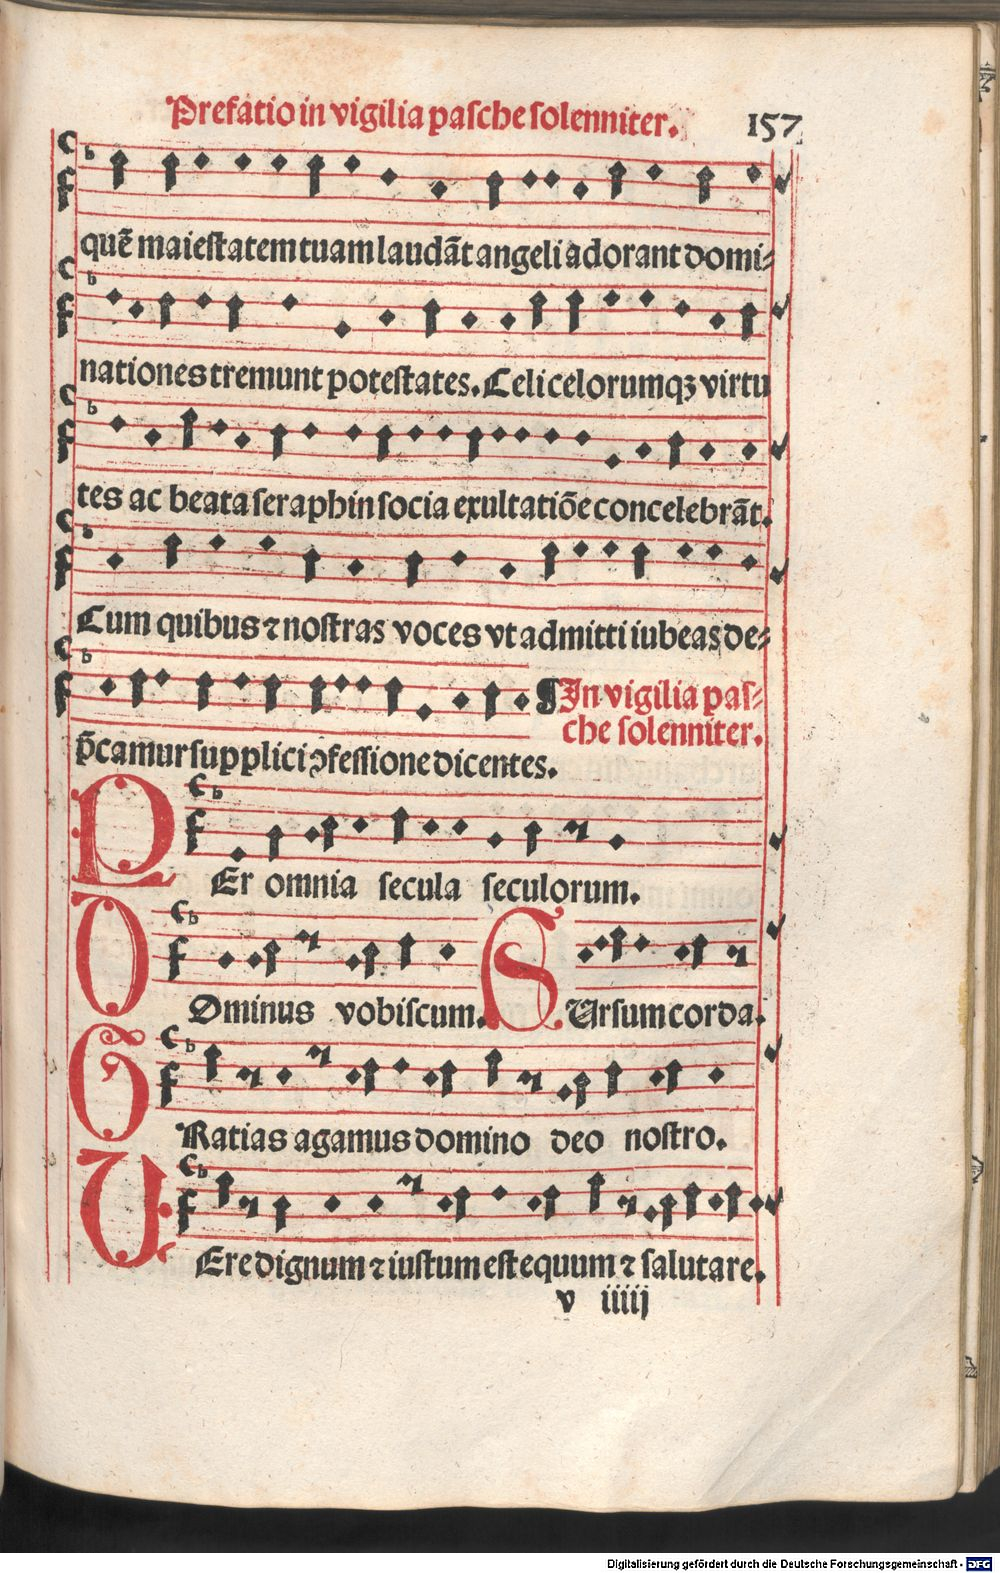 Prefatio in vigilia pasche solenniter. 157
quē maiestatem tuam laudāt angeli adorant domi⸗
nationes tremunt potestates. Celi celorumqꝫ virtu
tes ac beata seraphin socia exultatiōe concelebrāt.
Cum quibus ⁊ nostras voces vt admitti iubeas de⸗
p̄camur supplici ꝯfessione dicentes.
¶ In vigilia pas⸗
che solenniter.
PEr omnia secula seculorum.
DOminus vobiscum. SUrsum corda.
GRatias agamus domino deo nostro.
VEre dignum ⁊ iustum est equum ⁊ salutare.
v iiiij
Digitalisierung gefördert durch die Deutsche Forschungsgemeinschaft - DFG